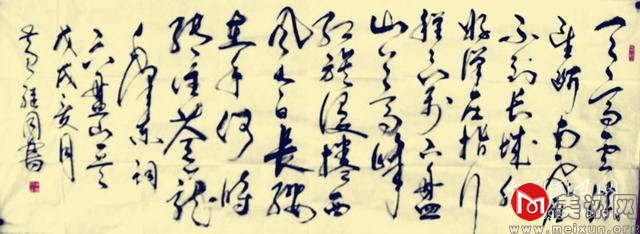 天高雲淡
望断南飞雁
不到长城非
好漢屈指行
程二万六盘
山上高峰
红旗漫捲西
风今日長缨
在手何時
缚住苍龙
毛泽东词
六盘山
戊戌夏月
同書
M 美讯网
www.meixun.org